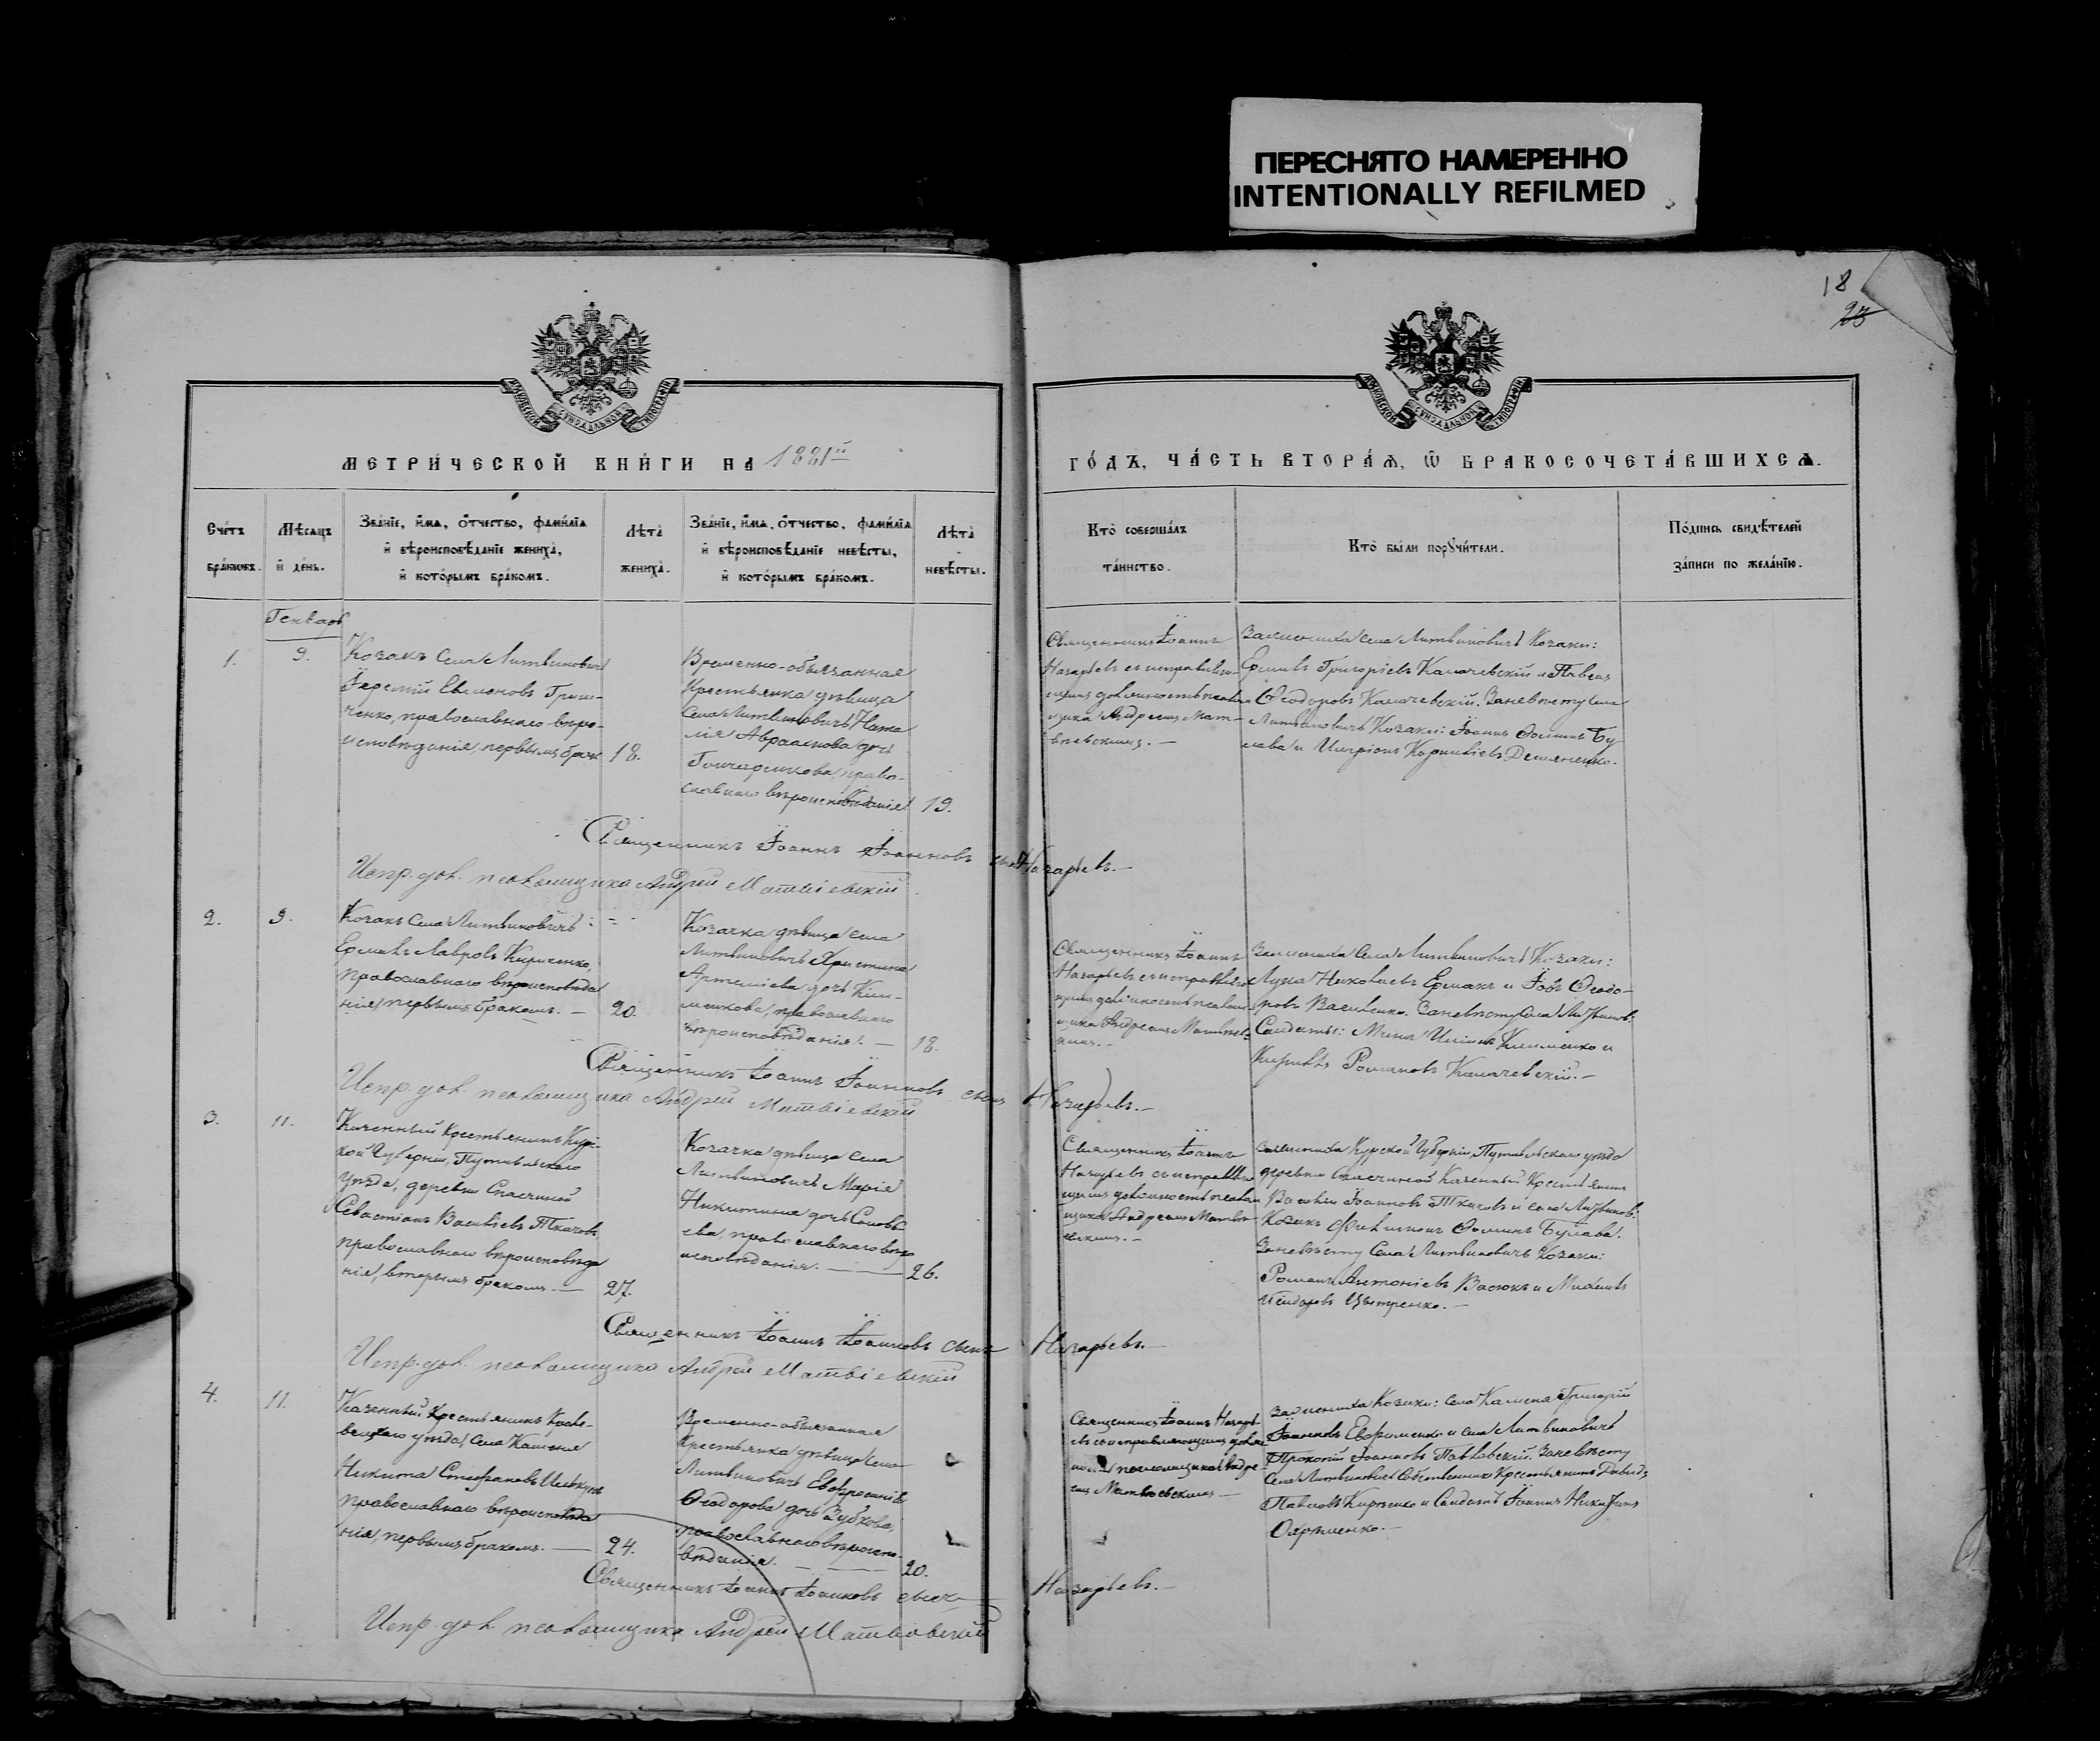 ПЕРЕСНЯТО НАМЕРЕННО
INTENTIONALLY REFILMED
18
23
МОСКОВСКОЙ СУНОДАЛЬНОЙ ТИПОГРАФІИ
МОСКОВСКОЙ СУНОДАЛЬНОЙ ТИПОГРАФІИ
МЕТРИ́ЧЕСКОЙ КНИ́ГИ НА 1881й
ГО́ДЪ, ЧА́СТЬ ВТОРА́Ѧ, Ѿ БРАКОСОЧЕТА́ВШИХСѦ.
Сче́тъ бра́ковъ.
Мѣ́сяцъ и де́нь.
Зва́нїе, и҆́мѧ, ѻ҆́тчество, фами́лїѧ и҆ вѣроисповѣ́данїе жениха̀, и҆ кото́рымъ бра́комъ.
Лѣта̀ жениха̀.
Зва́нїе, и҆́мѧ, ѻ҆́тчество, фами́лїѧ и҆ вѣроисповѣ́данїе невѣ́сты, и҆ кото́рымъ бра́комъ.
Лѣта̀ невѣ́сты.
Кто̀ соверша́лъ та́инство.
Кто̀ бы́ли порꙋчи́тели.
По́дпись свидѣ́телей за́писи по жела́нїю.
Генварь
1.
9.
Козакъ села Литвиновичъ
Іеремій Евменовъ Гри
ченко, православнаго вѣро-
исповѣданія, первымъ брак
18.
Временно-обязанная
крестьянка дѣвица
села Литвиновичъ Ната
лія Авраамова дочь
Гончаренкова, право-
славнаго вѣроисповѣданія
19.
Священникъ Іоаннъ
Назарьевъ съ исправляю-
щимъ должность псалом
щика Андреемъ Мат-
віевскимъ. —
За жениха села Литвиновичъ Козаки:
Григоріевъ Калачевскій и Павелъ
Ѳеодоровъ Калачевскій. За невѣсту села
Литвиновичъ Козаки: Іоаннъ Ѳоминъ Бу
лава и Иларіонъ Корниліевъ Демяненко.
Священникъ Іоаннъ Іоанновъ сынъ Назарьевъ. —
Испр. дол. псаломщика Андрей Матвіевскій
2.
9.
Козакъ села Литвиновичъ
Ермилъ Лавровъ Кириченко,
православнаго вѣроисповѣда
нія, первымъ бракомъ. —
20.
Козачка дѣвица села
Литвиновичъ Христина
Артеміева дочь Кли-
менкова, православнаго
вѣроисповѣданія. —
18.
Священникъ Іоаннъ
Назарьевъ съ исправляю
щимъ должность псалом-
щика Андреемъ Матвіевс-
кимъ. —
За жениха села Литвиновичъ Козаки:
Лука Николаевъ Ермакъ и Іовъ Ѳеодо-
ровъ Василенко. За невѣсту села Литвинов:
Солдаты: Мина Клименко и
Кириллъ Романовъ Калачевскій. —
Священникъ Іоаннъ Іоанновъ сынъ Назарьевъ. —
Испр. дол. псаломщика Андрей Матвіевскій
3.
11.
Казенный крестьянинъ Курс-
кой Губерніи, Путивльскаго
уѣзда, деревни Спасчиной
Севастіанъ Василіевъ Ткачовъ,
православнаго вѣроисповѣда
нія, вторымъ бракомъ. —
27.
Козачка дѣвица села
Литвиновичъ Марія
Никитина дочь Соловь
ева, православнаго вѣро
исповѣданія. —
26.
Священникъ Іоаннъ
Назарьевъ съ исправляю
щимъ должность псалом
щика Андреемъ Матві
евскимъ. —
За жениха Курской Губерніи, Путивльскаго уѣзда
деревни Спасчиной Казенный крестьянинъ
Василій Іоанновъ Ткачовъ и села Литвинов:
Козакъ Филимонъ Ѳоминъ Булава.
За невѣсту села Литвиновичъ Козаки:
Романъ Антоніевъ Васюкъ и Михаилъ
Исидоровъ —
Священникъ Іоаннъ Іоанновъ сынъ Назарьевъ. —
Испр. дол. псаломщика Андрей Матвіевскій
4.
11.
Казенный крестьянинъ Кроле-
вецкаго уѣзда, села Каменя
Никита Стефановъ
православнаго вѣроисповѣда
нія, первымъ бракомъ. —
24.
Временно-обязанная
крестьянка дѣвица села
Литвиновичъ Евфросинія
Ѳеодорова дочь Зубкова,
православнаго вѣроиспо-
вѣданія. —
20.
Священникъ Іоаннъ Назарь-
евъ съ исправляющимъ долж
ность псаломщика Андре-
емъ Матвіевскимъ —
За жениха Козаки: села Каменя Григорій
Іоанновъ Евфименко и села Литвиновичъ
Прокопій Іоанновъ Павловскій. За невѣсту
села Литвиновичъ собственникъ крестьянинъ Давидъ
Павловъ и Солдатъ Іоаннъ Никитинъ
Охрѣменко. —
Священникъ Іоаннъ Іоанновъ сынъ Назарьевъ. —
Испр. дол. псаломщика Андрей Матвіевскій